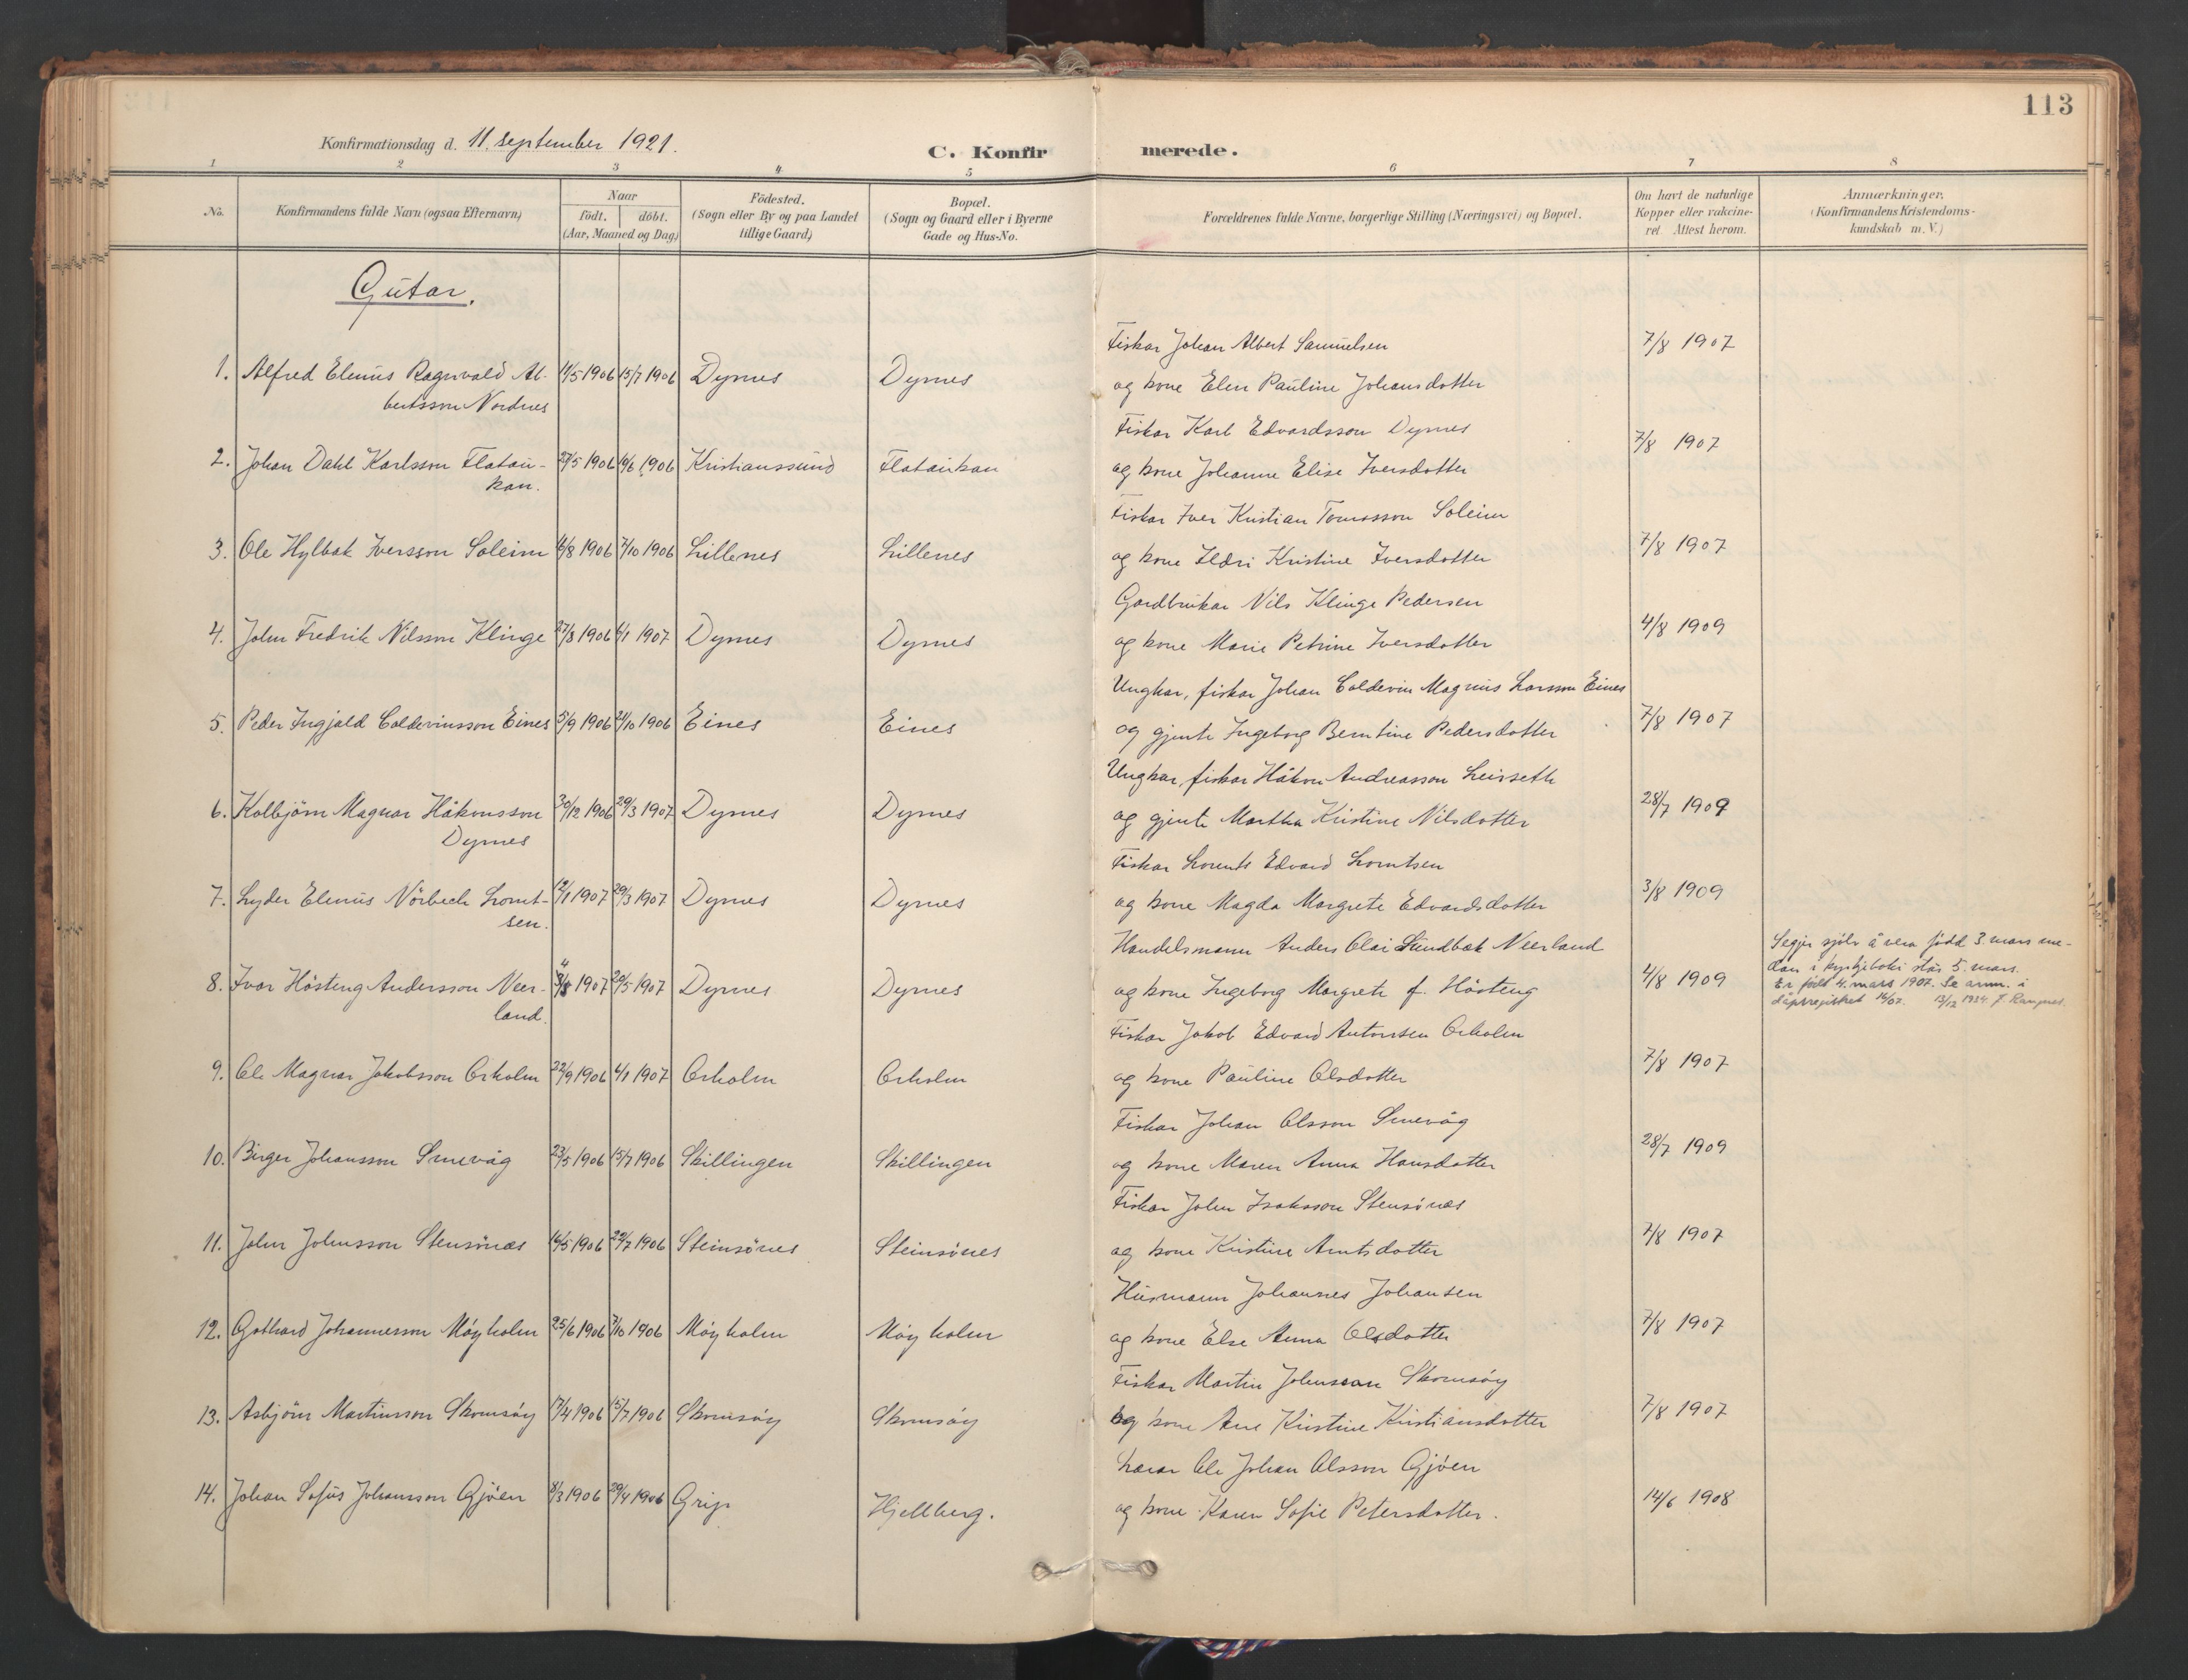 113
Konfirmationsdag d. 11. september 1921.
C. Konfirmerede.
1 2 3 4 5 6 7 8
No.
Konfirmandens fulde Navn (ogsaa Efternavn)
Naar
födt. döbt.
(Aar, Maaned og Dag)
Födested.
(Sogn eller By og paa Landet
tillige Gaard)
Bopæl.
(Sogn og Gaard eller i Byerne
Gade og Hus-No.
Forældrenes fulde Navne, borgerlige Stilling (Næringsvei) og Bopæl.
Om havt de naturlige
Kopper eller vakcine-
ret. Attest herom.
Anmærkninger.
(Konfirmandens Kristendoms-
kundskab m. V.)
Gutar.
Fiskar Johan Albert Samuelsen 7/8 1907
1. Alfred Elenus Ragnvald Al- 11/5 1906 15/7 1906 Dyrnes Dyrnes og kone Elen Pauline Johansdotter
bertsson Nordnes
Fiskar Karl Edvardsson Dyrnes 7/8 1907
2. Johan Dahl Karlsson Flatau- 27/5 1906 10/6 1906 Kristianssund Flataukan og kone Johanne Elise Iversdotter
kan.
Fiskar Iver Kristian Tomasson Soleim
3. Ole Hylbak Iversson Soleim 16/8 1906 7/10 1906 Lillenes Lillenes og kone Ildri Kristine Iversdotter 7/8 1907
Gardbrukar Nils Klinge Pedersen
4. John Fredrik Nilsson Klinge 27/8 1906 6/1 1907 Dyrnes Dyrnes og kone Marie Petrine Iversdotter 4/8 1909
Ungkar, fiskar Johan Calderin Magnus Larsson Eines
5. Peder Ingjald Calderinsson Eines 5/9 1906 21/10 1906 Eines Eines og gjente Ingeborg Berntine Pedersdotter 7/8 1907
Ungkar, fiskar Håkon Andreasson Leirseth
6. Kolbjörn Magnar Håkonsson 30/12 1906 29/3 1907 Dyrnes Dyrnes og gjente Martha Kristine Nilsdotter 28/7 1909
Dyrnes
Fiskar Lorents Edvard Lorntsen
7. Lyder Elenus Nörbech Lornt- 12/1 1907 29/3 1907 Dyrnes Dyrnes og kone Magda Margrete Edvardsdotter 3/8 1909
sen.
Handelsmann Anders Olai Sundbak Neerland
8. Ivar Hösteng Andersson Neer- 1907 20/5 1907 Dyrnes Dyrnes og kone Ingeborg Margrete f. Hösteng 4/8 1909
land.
Segjer sjölv å vera född 3. mars me-
dan i kyrkjeboki står 5. mars.
Er född 4. mars 1907. Se anm. i
dåpsregistret 14/07. 13/12 1924.
Fiskar Jakob Edvard Antonsen Orholm
9. Ole Magnar Jakobsson Orholm 22/9 1906 6/1 1907 Orholm Orholm og kone Pauline Olsdotter 7/8 1907
Fiskar Johan Olsson Smevåg
10. Birger Johansson Smevåg 23/5 1906 15/7 1906 Skillingen Skillingen og kone Maren Anna Hansdotter 28/7 1909
Fiskar John Isaksson Stensönæs
11. John Johnsson Stensönæs 16/5 1906 29/7 1906 Steinsönes Steinsönes og kone Kristine Arntsdotter 7/8 1907
Husmann Johannes Johansen
12. Gothard Johannesson Möyholm 25/6 1906 7/10 1906 Möyholm Möyholm og kone Else Anna Olsdotter 7/8 1907
Fiskar Martin Johnsson Skomsöy
13. Asbjörn Martinsson Skomsöy 17/4 1906 15/7 1906 Skomsöy Skomsöy og kone Ane Kristine Kristiansdotter 7/8 1907
Lærar Ole Johan Olsson Gjöen
14. Johan Sofus Johansson Gjöen 8/3 1906 29/4 1906 Grip Hjellberg. og kone Karen Sofie Petersdotter. 14/6 1908